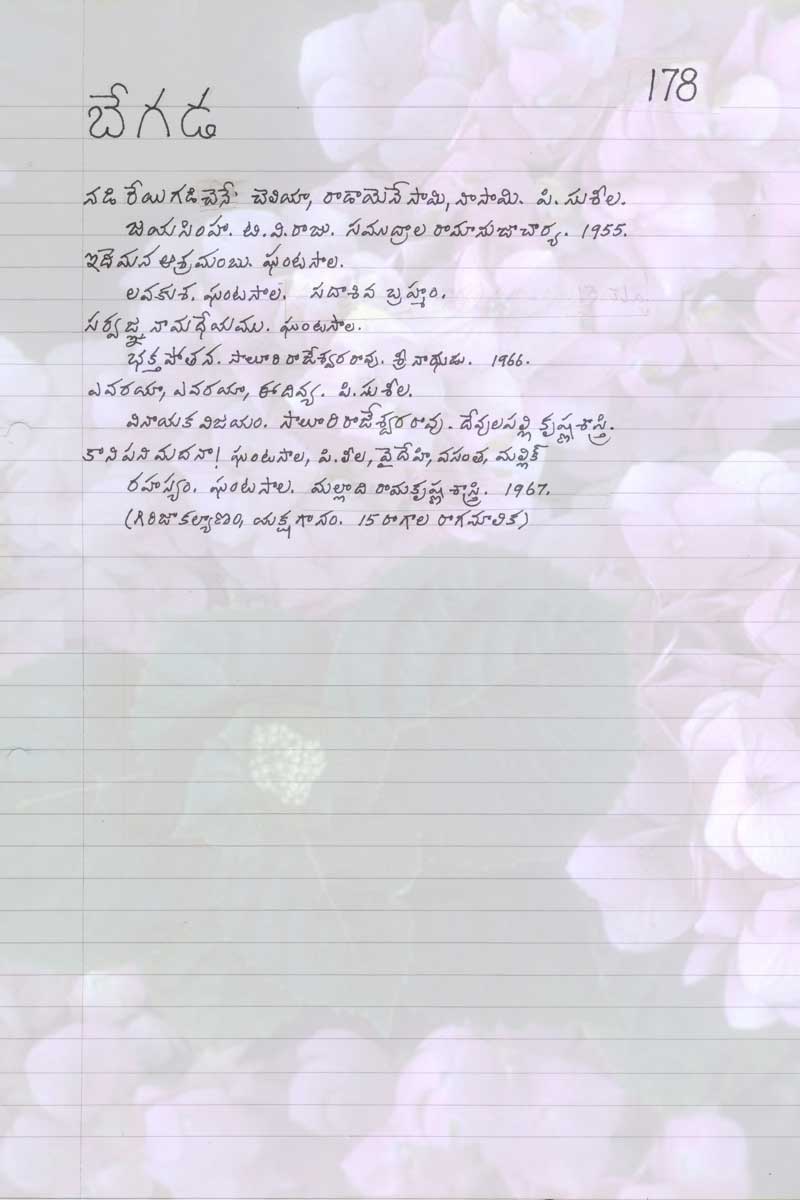 178
బేగడ
నడి రేయి గడిచెనే చెలియా, రాడాయెనే సామి, నాసామి. పి. సుశీల.
జయసింహా. టి.వి.రాజు. సముద్రాల రామానుజాచార్య. 1955.
ఇదెమన ఆశ్రమంబు. ఘంటసాల.
లవకుశ. ఘంటసాల. సదాశివ బ్రహ్మం.
సర్వజ్ఞ నామధేయము. ఘంటసాల.
భక్త పోతన. సాలూరి రాజేశ్వరరావు. శ్రీనాథుడు. 1966.
ఎవరయా, ఎవరయా, ఈదివ్య. పి.సుశీల.
వినాయక విజయం. సాలూరి రాజేశ్వరరావు. దేవులపల్లి కృష్ణశాస్త్రి.
కానిపని మదనా! ఘంటసాల, పి.లీల, వైదేహి, వసంత, మల్లిక్
రహస్యం. ఘంటసాల. మల్లాది రామకృష్ణ శాస్త్రి. 1967.
(గిరిజాకల్యాణం, యక్షగానం. 15 రాగాల రాగమాలిక)